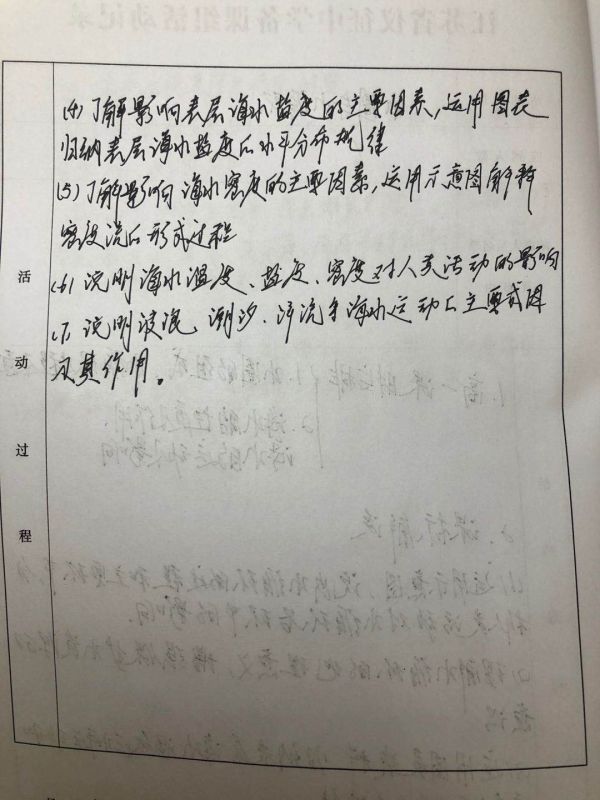 (4)了解影响表层海水盐度的主要因素,运用图表
归纳表层海水盐度的水平分布规律
(5)了解影响海水密度的主要因素,运用示意图解释
密度流的形成过程
(6)说明海水温度、盐度、密度对人类活动的影响
(7)说明波浪、潮汐、洋流等海水运动的主要成因
及其作用。
活
动
过
程